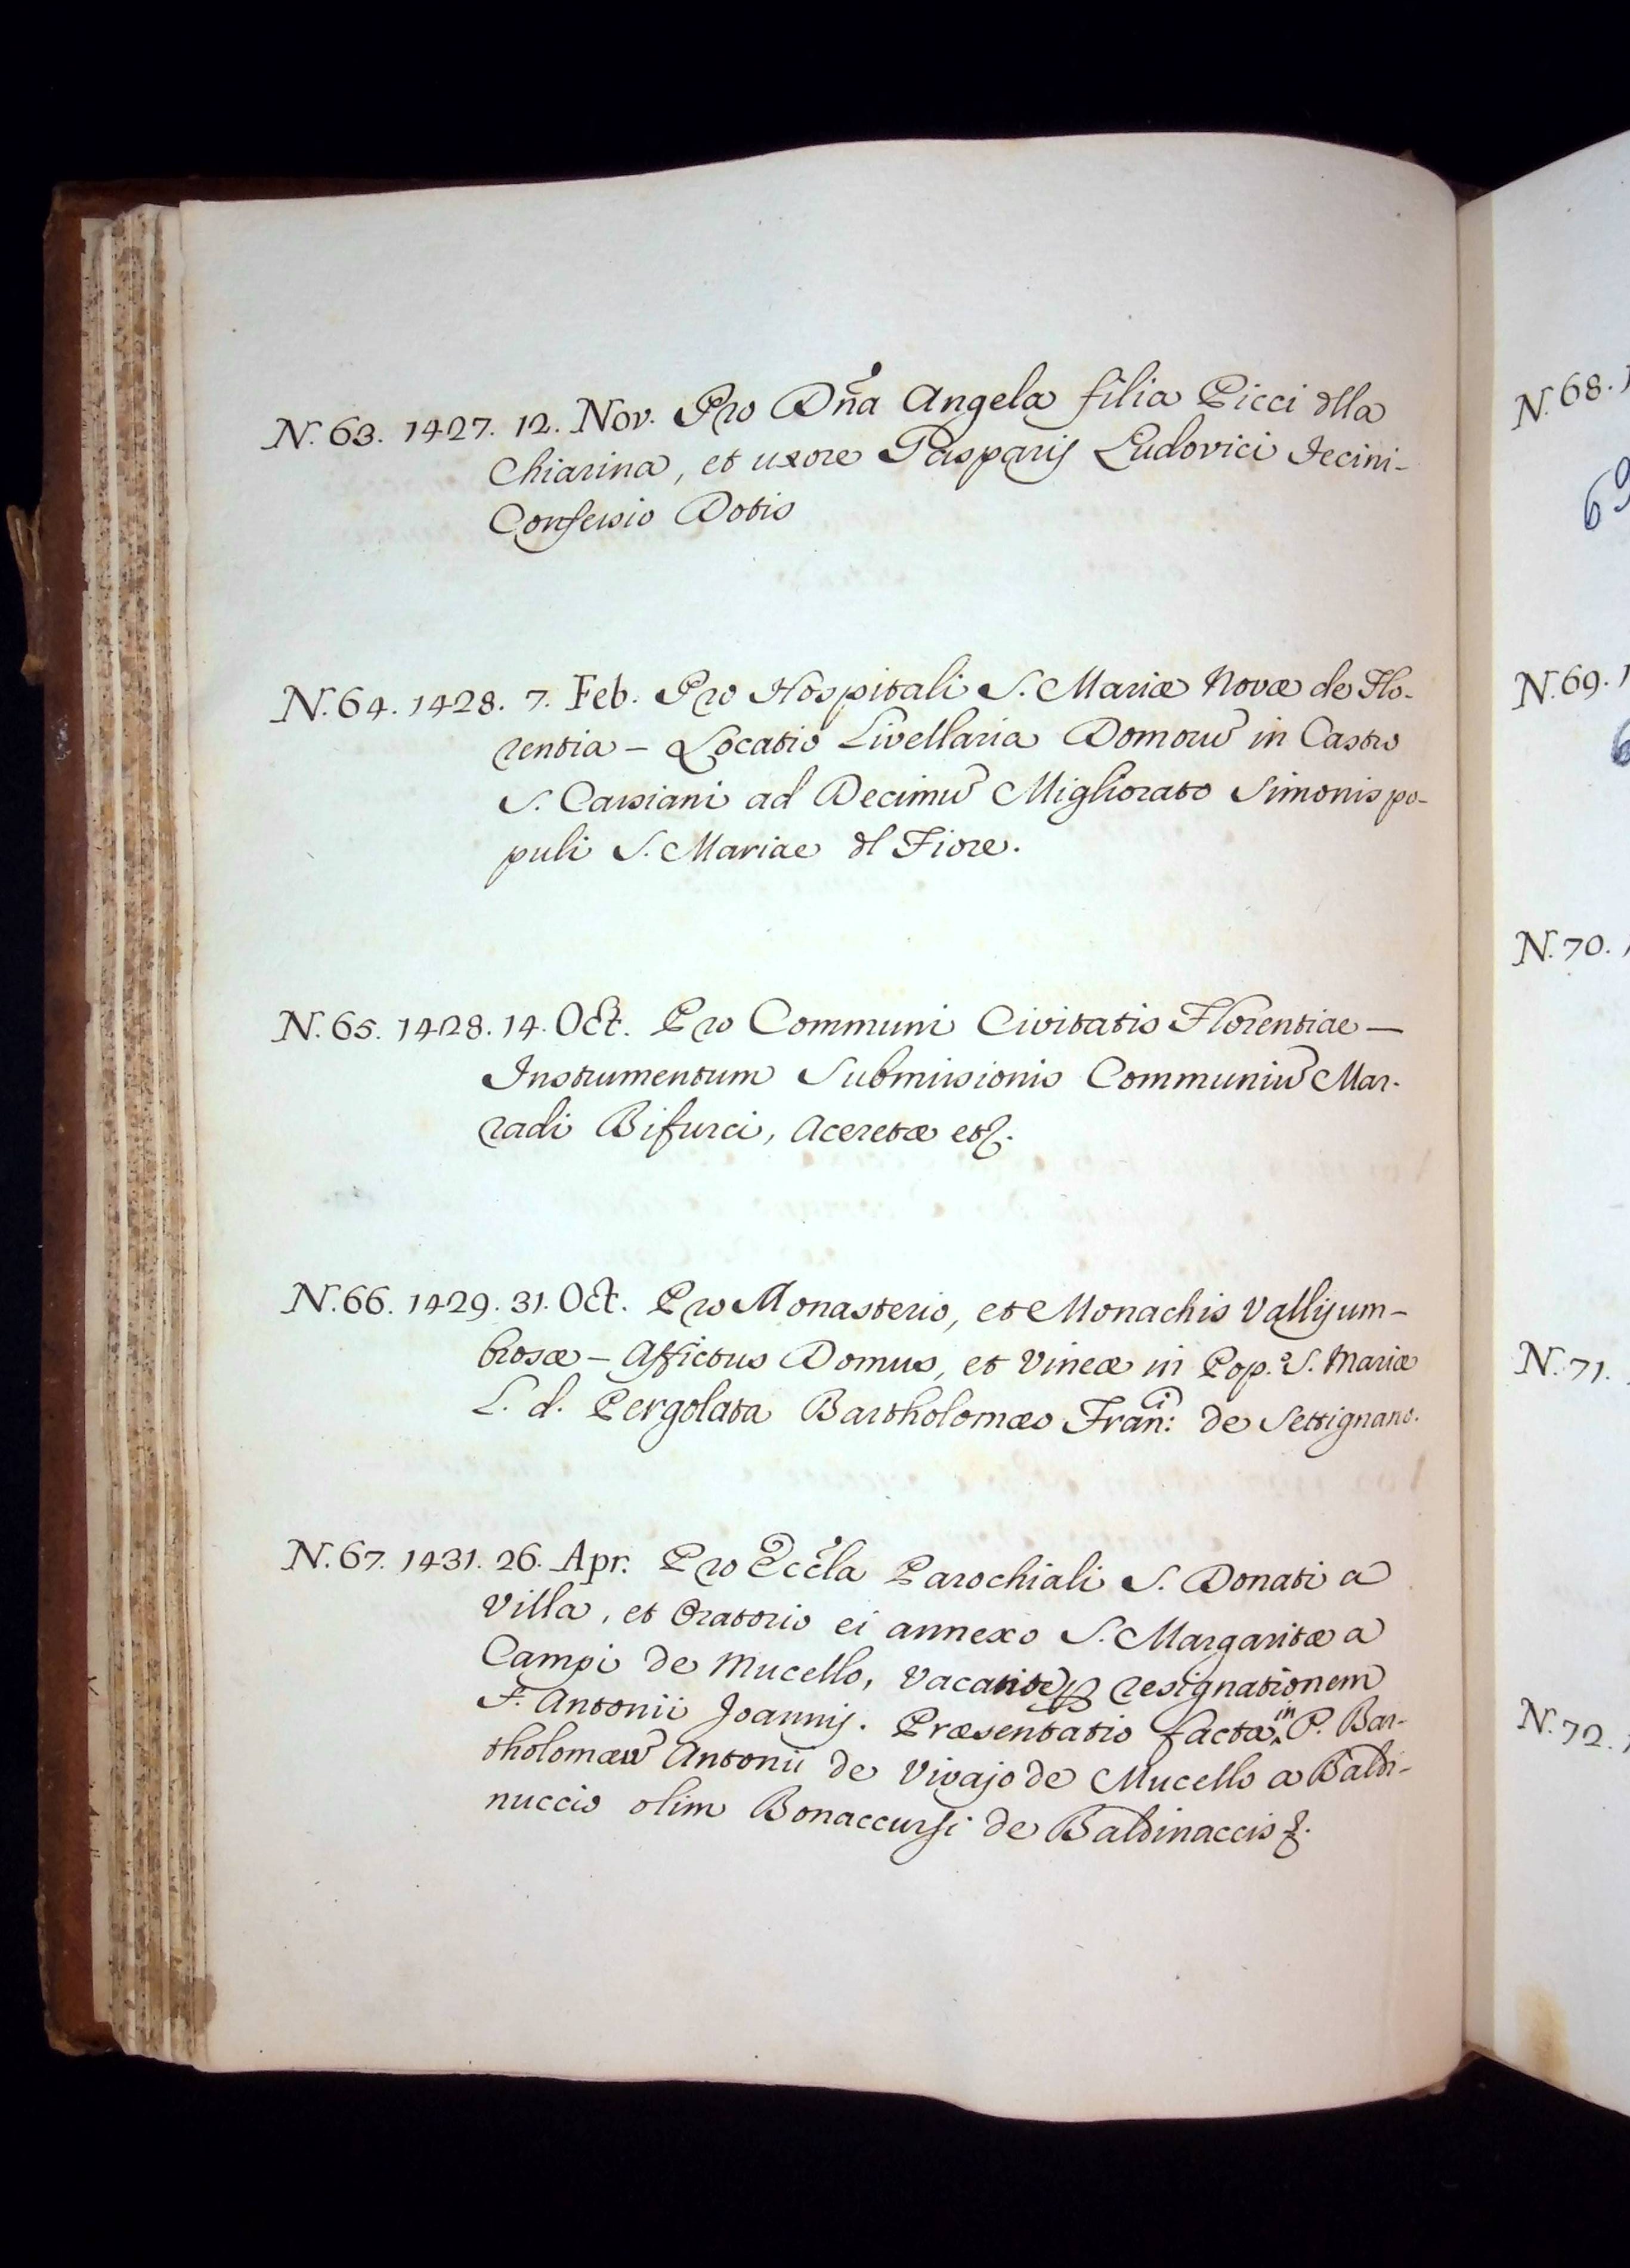 N. 63. 1427. 12. Nov. Pro Dña Angela filia Picci dlla
Chiarina, et uxore Gasparis Ludovici Iecini-
Confessio Dotis
N. 64. 1428. 7. Feb. Pro Hospitali S. Mariæ Novæ de Flo-
rentia - Locatio Livellaria Domorũ in Castro
S. Cassiani ad Decimũ Migliorato Simonis po-
puli S. Mariae dl Fiore.
N. 65. 1428. 14. Oct. Pro Communi Civitatis Florentiae —
Instrumentum Submissionis Communiũ Mar-
radi Bifurci, Aceretæ etc.
N. 66. 1429. 31. Oct. Pro Monasterio, et Monachis Vallisum-
brosæ - Affictus Domus, et Vineæ in Pop.º S. Mariæ
L. d. Pergolata Bartholomæo Franĩ: de Settignano.
N. 67. 1431. 26. Apr. Pro Eccła Parochiali S. Donati a
Villa, et Oratorio ei annexo S. Margaritæ a
Campi de Mucello, Vacante ꝑ resignationem
F. Antonii Joannis. Præsentatio factæ in P. Bar-
tholomæũ Antonii de Vivajo de Mucello a Baldi-
nuccio olim Bonaccursi de Baldinaccis &.
N. 68. 1
69
N. 69. 1
6
N. 70.
N. 71.
N. 72. 1